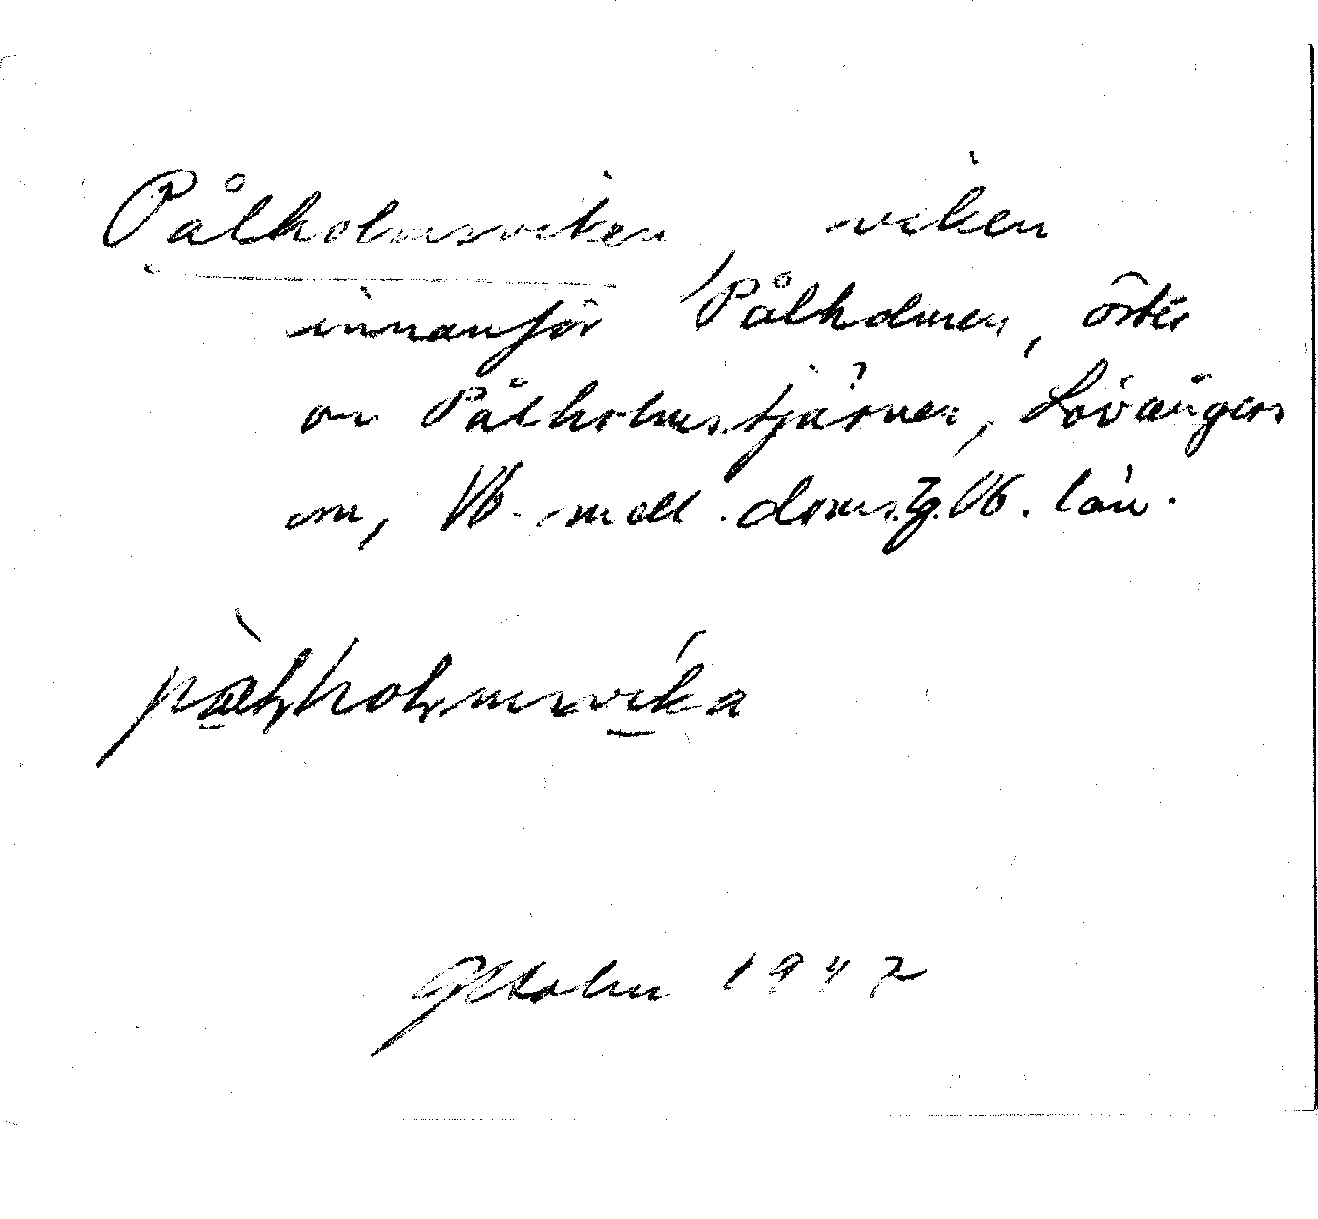 Pålholmsviken, viken
innanför Pålholmen, öster
om Pålholmstjärnen, Lövångers
sn, Vb. mell. doms. Vb. län.
pålholmsvika
GHolm 1947